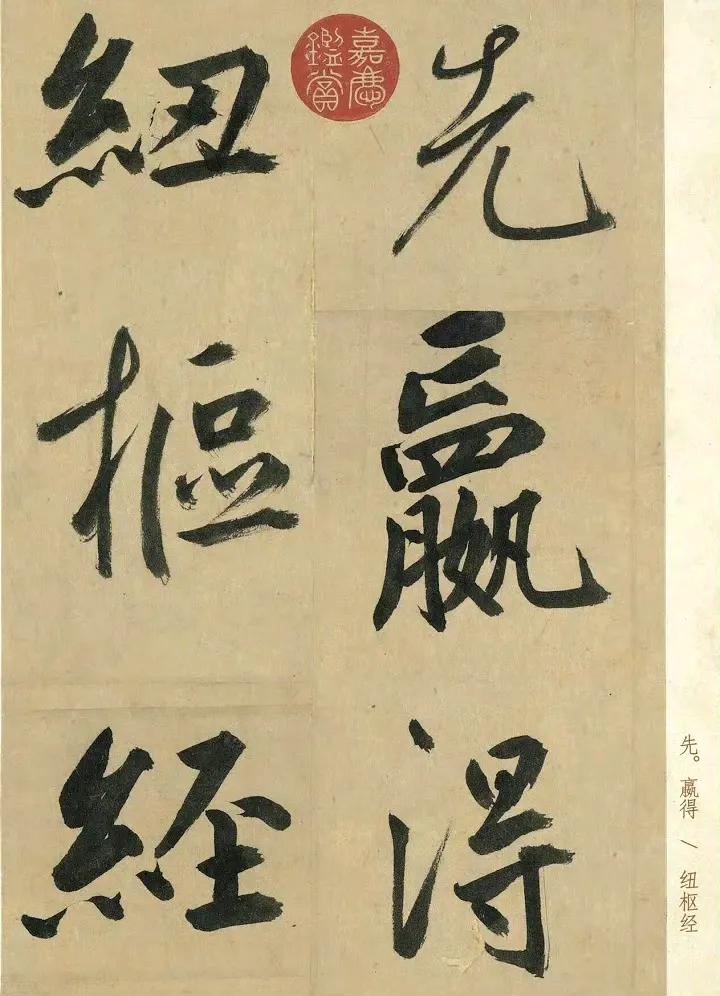 先。嬴得 / 纽枢经
先嬴得
嘉慶鑑賞
紐樞經